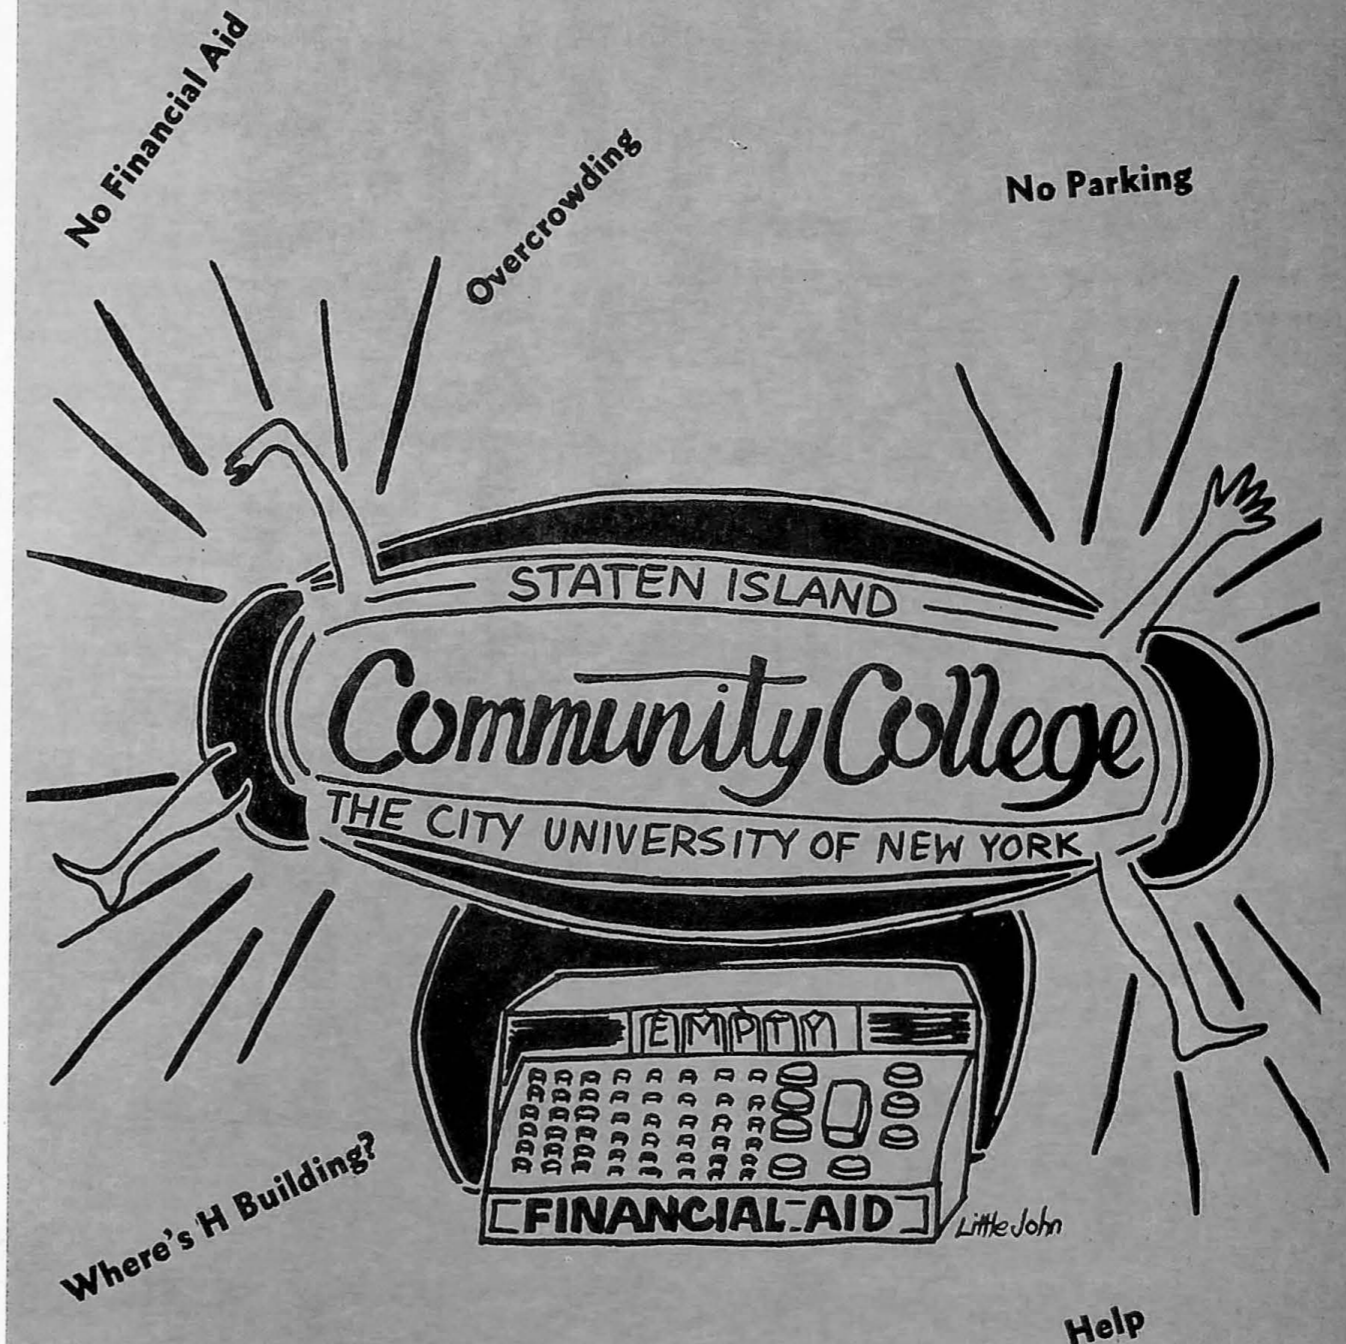 No Financial Aid
Overcrowding
No Parking
STATEN ISLAND
Community College
THE CITY UNIVERSITY OF NEW YORK
EMPTY
FINANCIAL AID
Little John
Where's H Building?
Help